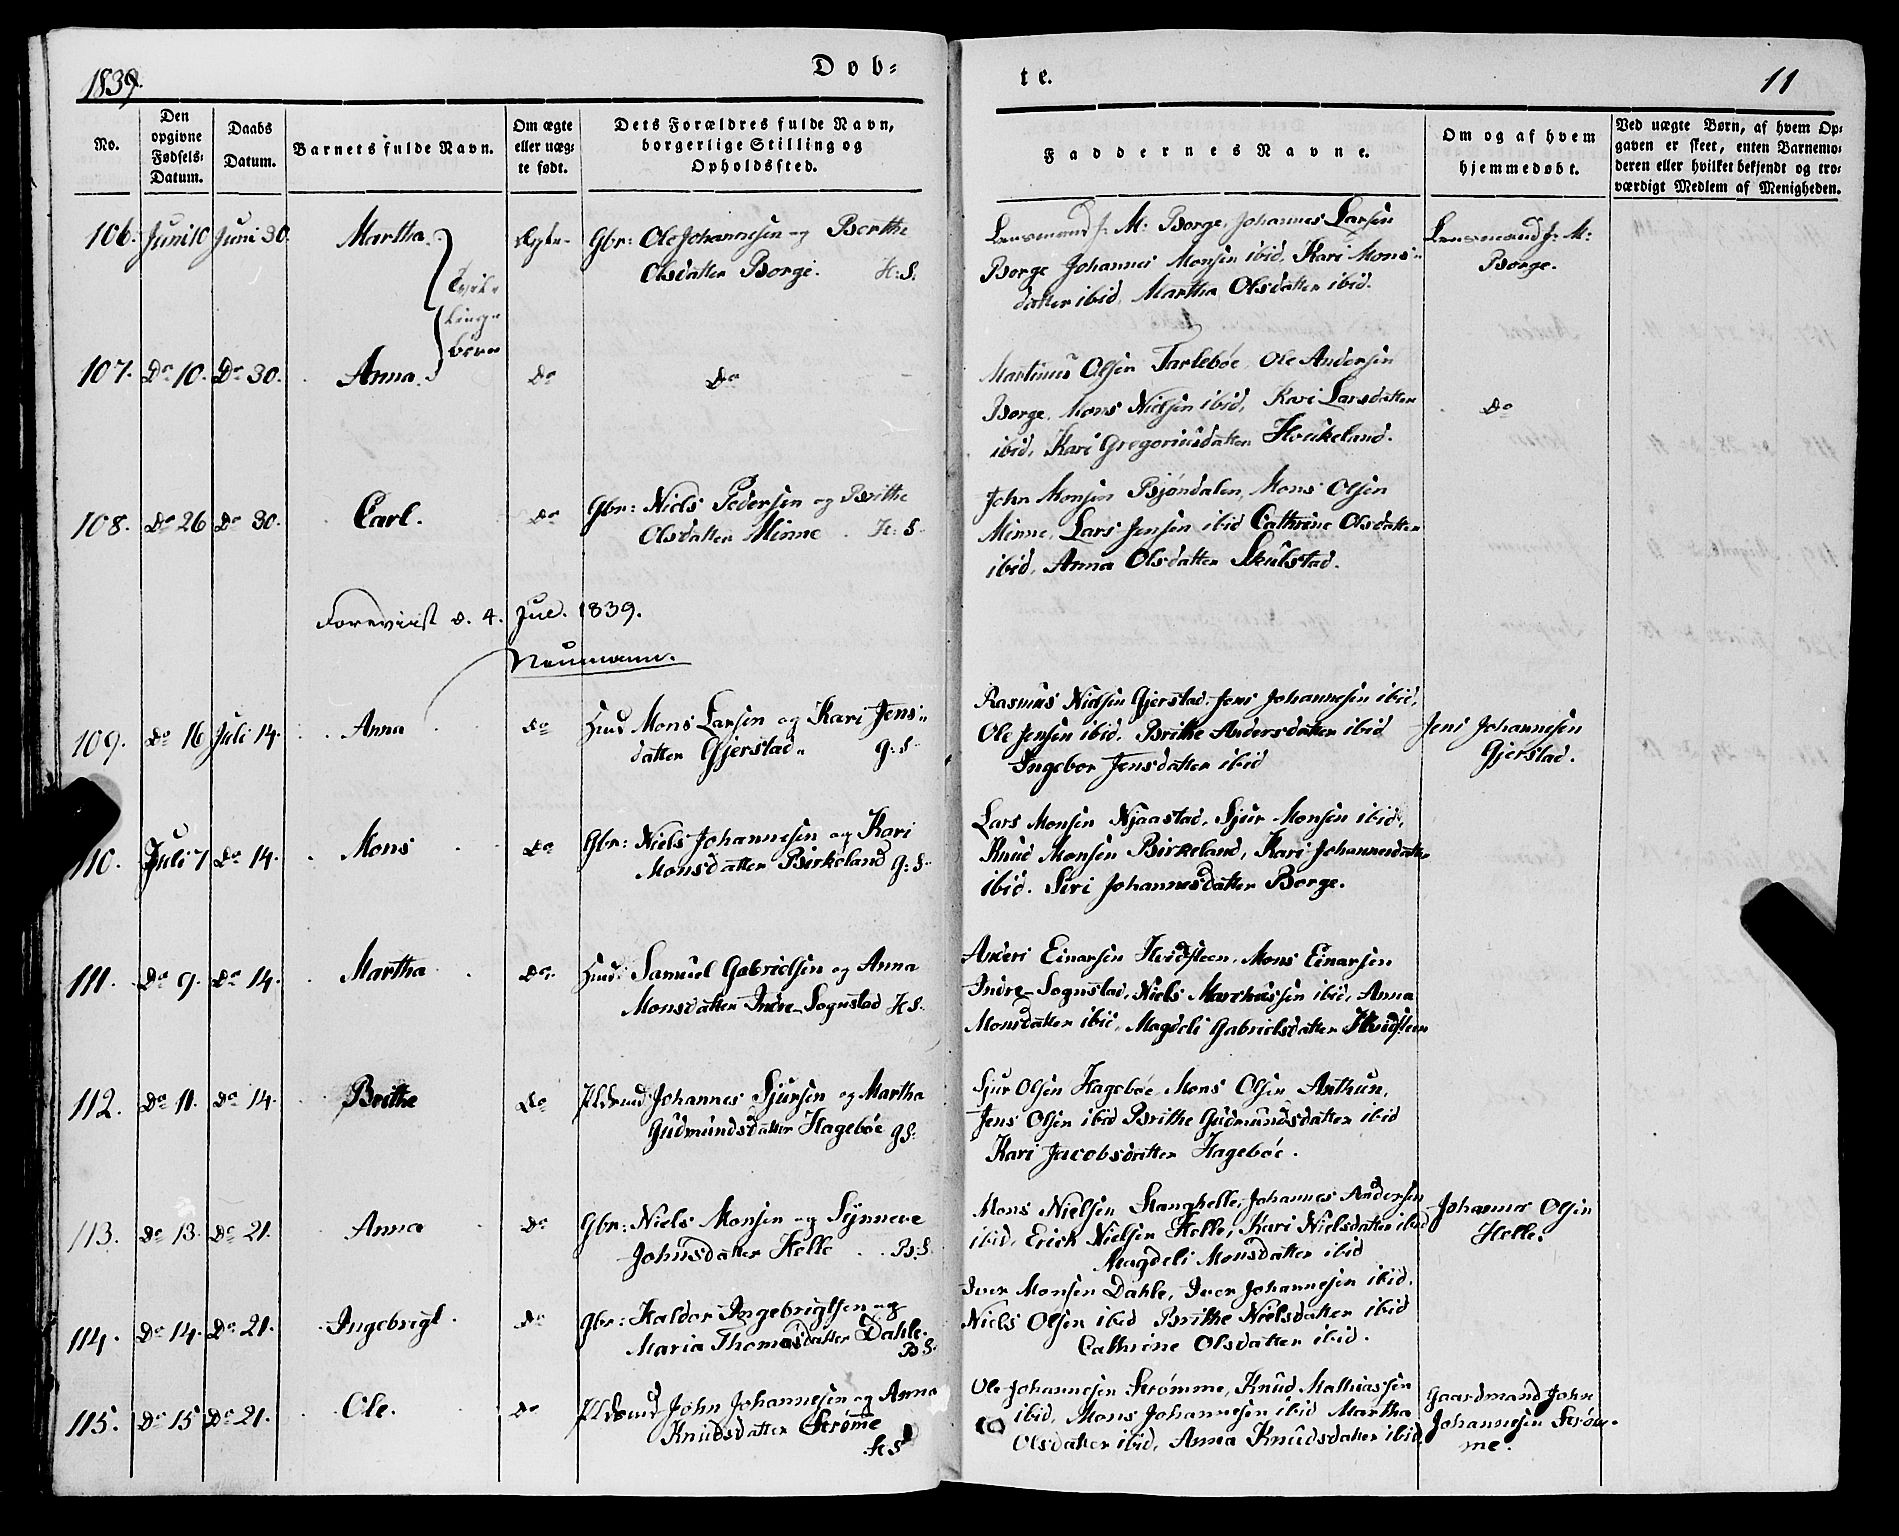 1839. Døb-
te. 11
No. Den opgivne Fødsels-Datum. Daabs Datum. Barnets fulde Navn. Om ægte eller uæg-te født. Dets Forældres fulde Navn, borgerlige Stilling og Opholdssted.
Faddernes Navne. Om og af hvem hjemmedøbt. Ved uægte Børn, af hvem Op-gaven er skeet, enten Barnemo-deren eller hvilket bekjendt og tro-værdigt Medlem af Menigheden.
106. Juni 10 Juni 30. Martha. Ægte Gbr: Ole Johannesen og Berthe
Olsdatter Borge. H: S.
Tvil-
linge
børn
Lensmand J: M: Borge, Johannes Larsen
Borge Johannes Monsen ibid. Kari Mons-
datter ibid, Martha Olsdatter ibid.
Lensmand J: M:
Borge.
107. Do 10. Do 30. Anna. Do Do
Martinus Olsen Tarlebøe, Ole Andersen
Borge, Mons Nielsen ibid, Kari Larsdatter
ibid, Kari Gregoriusdatter Houkeland.
Do
108. Do 26 Do 30. Carl. Do Gbr: Niels Pedersen og Brithe
Olsdatter Minne H: S.
John Monsen Bjøndalen, Mons Olsen
Minne, Lars Jensen ibid Cathrine Olsdatter
ibid, Anna Olsdatter Skulstad.
Foreviist d. 4. Jul. 1839.
Neumann.
109. Do 16 Juli 14. Anna Do Huus Mons Larsen og Kari Jens-
datter Gjerstad. G: S.
Rasmus Nielsen Gjerstad, Jens Johannesen ibid,
Ole Jensen ibid, Brithe Andersdatter ibid
Ingebor Jensdatter ibid
Jens Johannesen
Gjerstad.
110. Juli 7 Do 14. Mons Do Gbr: Niels Johannesen og Kari
Monsdatter Birkeland G: S.
Lars Monsen Njaastad, Sjur Monsen ibid,
Knud Monsen Birkeland, Kari Johannesdatter
ibid. Siri Johannesdatter Borge.
111. Do 9. Do 14. Martha Do. Huus: Samuel Gabrielsen og Anna
Monsdatter Indre-Sognstad H S.
Anders Einarsen Hvidsteen, Mons Einarsen
Indre-Sognstad, Niels Marthussen ibid, Anna
Monsdatter ibid, Magdeli Gabrielsdatter Hvidsteen
112. Do 11. Do 14. Brithe Do Johannes Sjursen og Martha
Gudmundsdatter Hagebøe G S.
Sjur Olsen Hagebøe Mons Olsen Arthun,
Jens Olsen ibid Brithe Gudmundsdatter ibid
Kari Jacobsdatter Hagebøe.
113. Do 13. Do 21. Anna Do Gbr: Niels Monsen og Synneve
Johnsdatter Helle B: S.
Mons Nielsen Stanghelle, Johannes Andersen
ibid. Erick Nielsen Helle, Kari Nielsdatter ibid
Magdeli Monsdatter ibid
Johannes Olsen
Helle.
114. Do 14. Do 21. Ingebrigt Do Gbr: Haldor Ingebrigtsen og
Maria Thomasdatter Dahle.
B S.
Iver Monsen Dahle, Iver Johannesen ibid.
Niels Olsen ibid Brithe Nielsdatter ibid
Cathrine Olsdatter ibid.
115. Do 15 Do 21. Ole. Do John Johannesen og Anna
Knudsdatter Strøme
H S
Ole Johannesen Strømme, Knud Mathiassen
ibid, Mons Johannesen ibid Martha
Olsdatter ibid, Anna Knudsdatter ibid
Gaardmand John
Johannesen Strøm-
me.